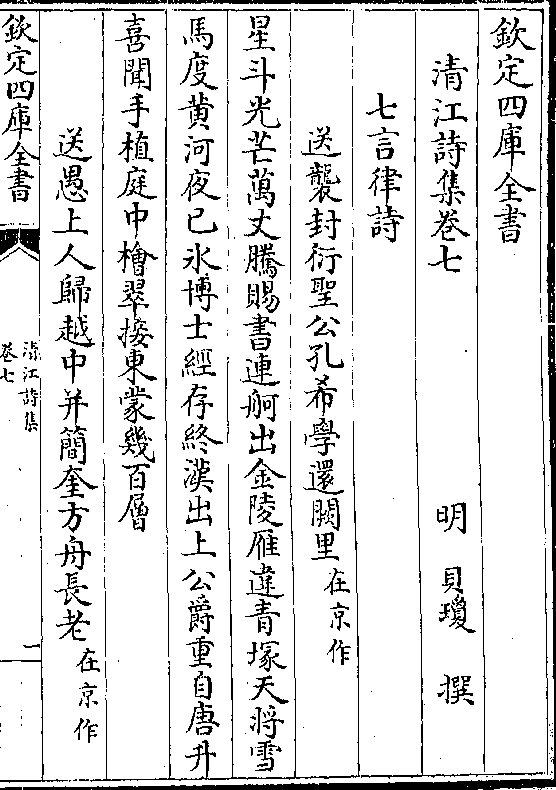 欽定四庫全書
清江詩集卷七
明 貝瓊 撰
七言律詩
送襲封衍聖公孔希學還闕里在京作
星斗光芒萬丈騰賜書連舸出金陵雁違青塚天將雪
馬度黄河夜已氷博士經存終漢出上公爵重自唐升
喜聞手植庭中檜翠接東蒙幾百層
送愚上人歸越中并簡奎方舟長老在京作
欽定四庫全書
清江詩集
卷七
一